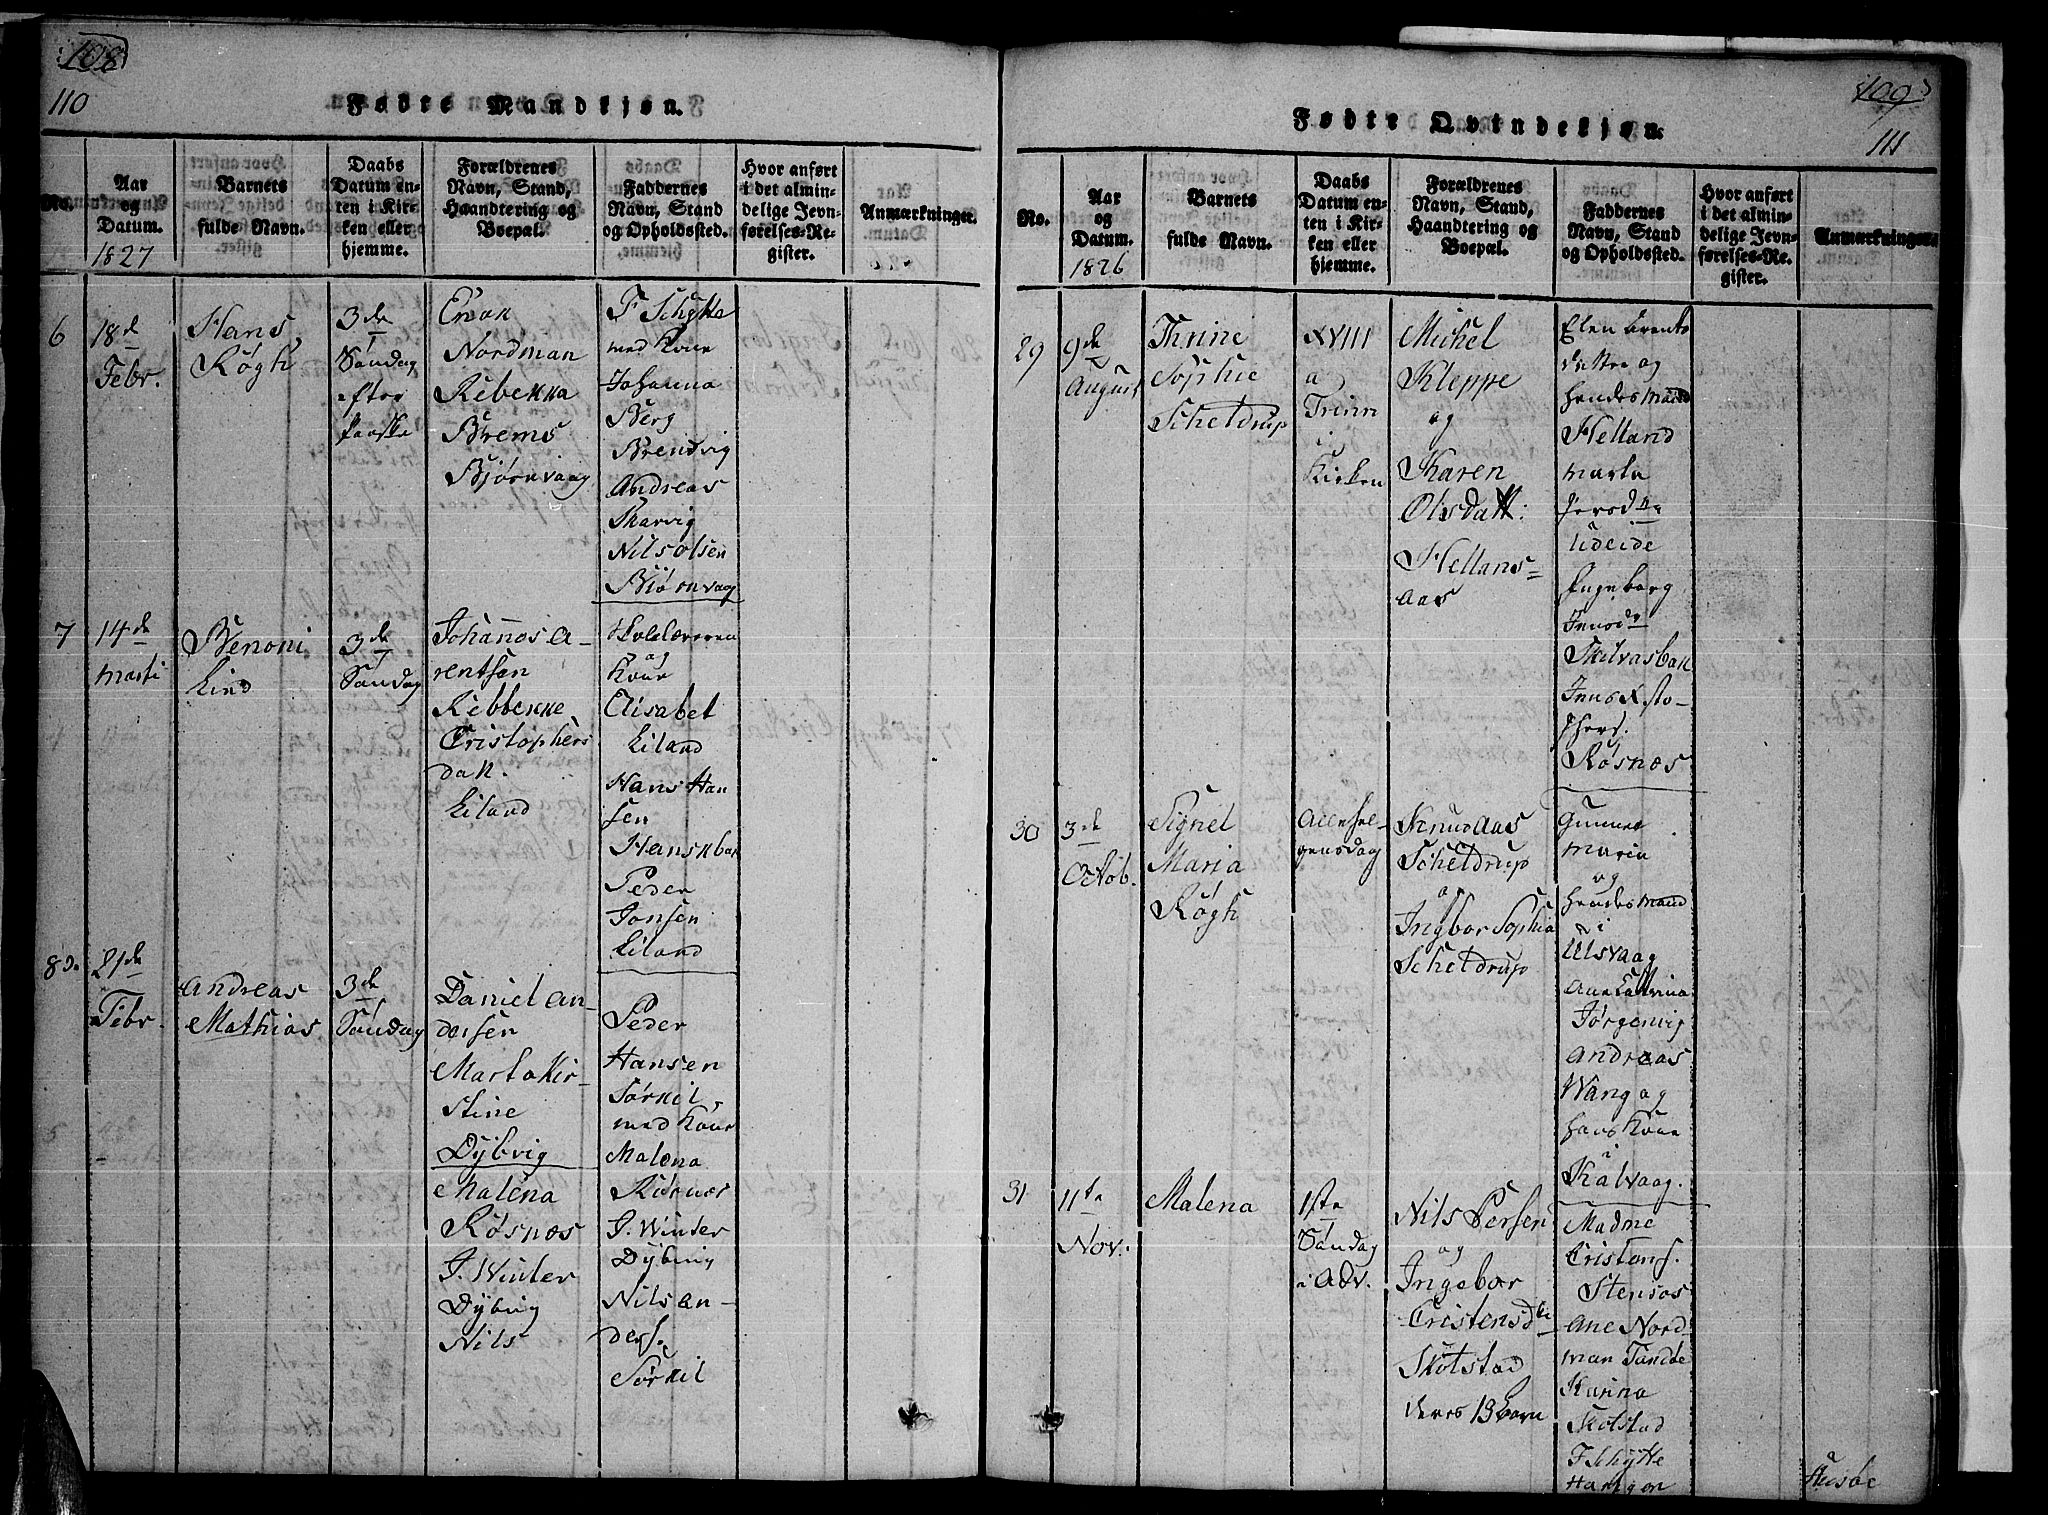 108
110
Fødte Mandkjøn.
No.
Aar
og
Datum.
1827
Barnets
fulde Navn.
Daabs
Datum en-
ten i Kir-
ken eller
hjemme.
Forældrenes
Navn, Stand,
Haandtering og
Boepæl.
Faddernes
Navn, Stand
og Opholdssted.
Hvor anført
i det almin-
delige Jevn-
førelses-Re-
gister.
Anmærkninger.
6
18de
Febr.
Hans
Røgh
3de
Søndag
efter
Paaske
Enok
Nordman
Rebekka
Brems
Bjørnvaag
F Schytte
med Kone
Johanna
Berg
Brendvig
Andreas
Skarvig
Nils Olsen
Biørnvaag
7
14de
Marti
Benoni
Lind
3de
Søndag
Johannes A-
rentsen
Rebbekke
Cristophers
dak.
Liland
Skolelæreren
og
Kone
Elisabet
Liland
Hans Han
sen
Hanskbak
Peder
Jonsen
Liland
8
21de
Febr.
Andreas
Mathias
3de
Søndag
Daniel An-
dersen
Marta Kir-
stine
Dybvig
Malena
Røsnæs
J. Winter
Dybvig
Nils
Peder
Hansen
Sørkil
med Kone
Malena
Røsnæs
J. Winter
Dybvig
Nils An-
ders.
Sørkil
109
111
Fødte Qvindekjøn.
No.
Aar
og
Datum.
1826
Barnets
fulde Navn.
Daabs
Datum en-
ten i Kir-
ken eller
hjemme.
Forældrenes
Navn, Stand,
Haandtering og
Boepæl.
Faddernes
Navn, Stand
og Opholdssted.
Hvor anført
i det almin-
delige Jevn-
førelses-Re-
gister.
Anmærkninger.
29
9de
August
Thrine
Sophie
Scheldrup
XVIII
a
Trinn
i
Kirken
Michel
Kleppe
og
Karen
Olsdatt:
Hellans-
aas
Elen Arents
datter og
hendes Mand
Helland
Marta
Udeide
Ingeborg
Jensdr
Skilvasbak
Jens Xsto-
phers.
Røsnæs
30
3de
Octob.
Signel
Maria
Røgh
Allehel-
gensdag
Knud Aas
Scheldrup
og
Ingbor Sophia
Scheldrup
Gunnel
Maria
og
hendes Mand
i
Ulsvaag
Ane Catrina
Jørgenvig
Andreas
Wang og
hans Kone
i
Kalvaag.
31
11te
Nov.
Malena
1ste
Søndag
i Adv.
Nils Persen
og
Ingebor
Cristensdtr
Skotstad
deres 13 Barn
Madme
Cristens.
Stensøs
Ane Nord
man Tandøe
Karina
Skotstad
F Schytte